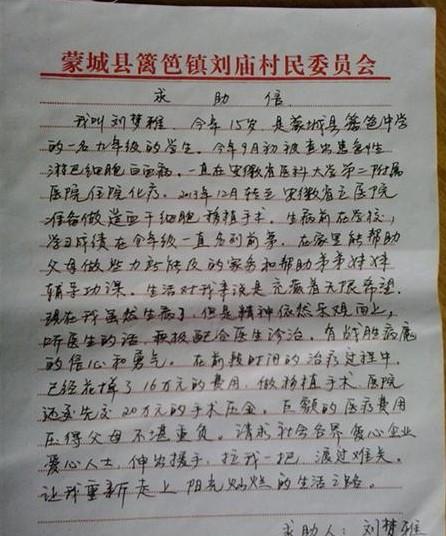 蒙城县篱笆镇刘庙村民委员会
求 助 信
我叫刘梦雅 今年15岁,是蒙城县篱笆中学
的一名九年级的学生。今年9月初被查出患急性
淋巴细胞白血病。一直在安徽省医科大学第二附属
医院住院化疗。2013年12月转至安徽省立医院
准备做造血干细胞移植手术。生病前在学校,
学习成绩在全年级一直名列前茅。在家里能帮助
父母做些力所能及的家务和帮助弟弟妹妹
辅导功课。生活对我来说是充满着无限希望.
现在我虽然生病了,但是精神依然乐观向上,
听医生的话,积极配合医生诊治。有战胜病魔
的信心和勇气。在前段时间的治疗过程中,
已经花掉了16万元的费用,做移植手术,医院
还要先交20万元的手术压金。巨额的医疗费用
压得父母不堪重负。请求社会各界爱心企业
爱心人士,伸出援手,拉我一把,渡过难关.
让我重新走上阳光灿烂的生活之路。
求助人:刘梦雅